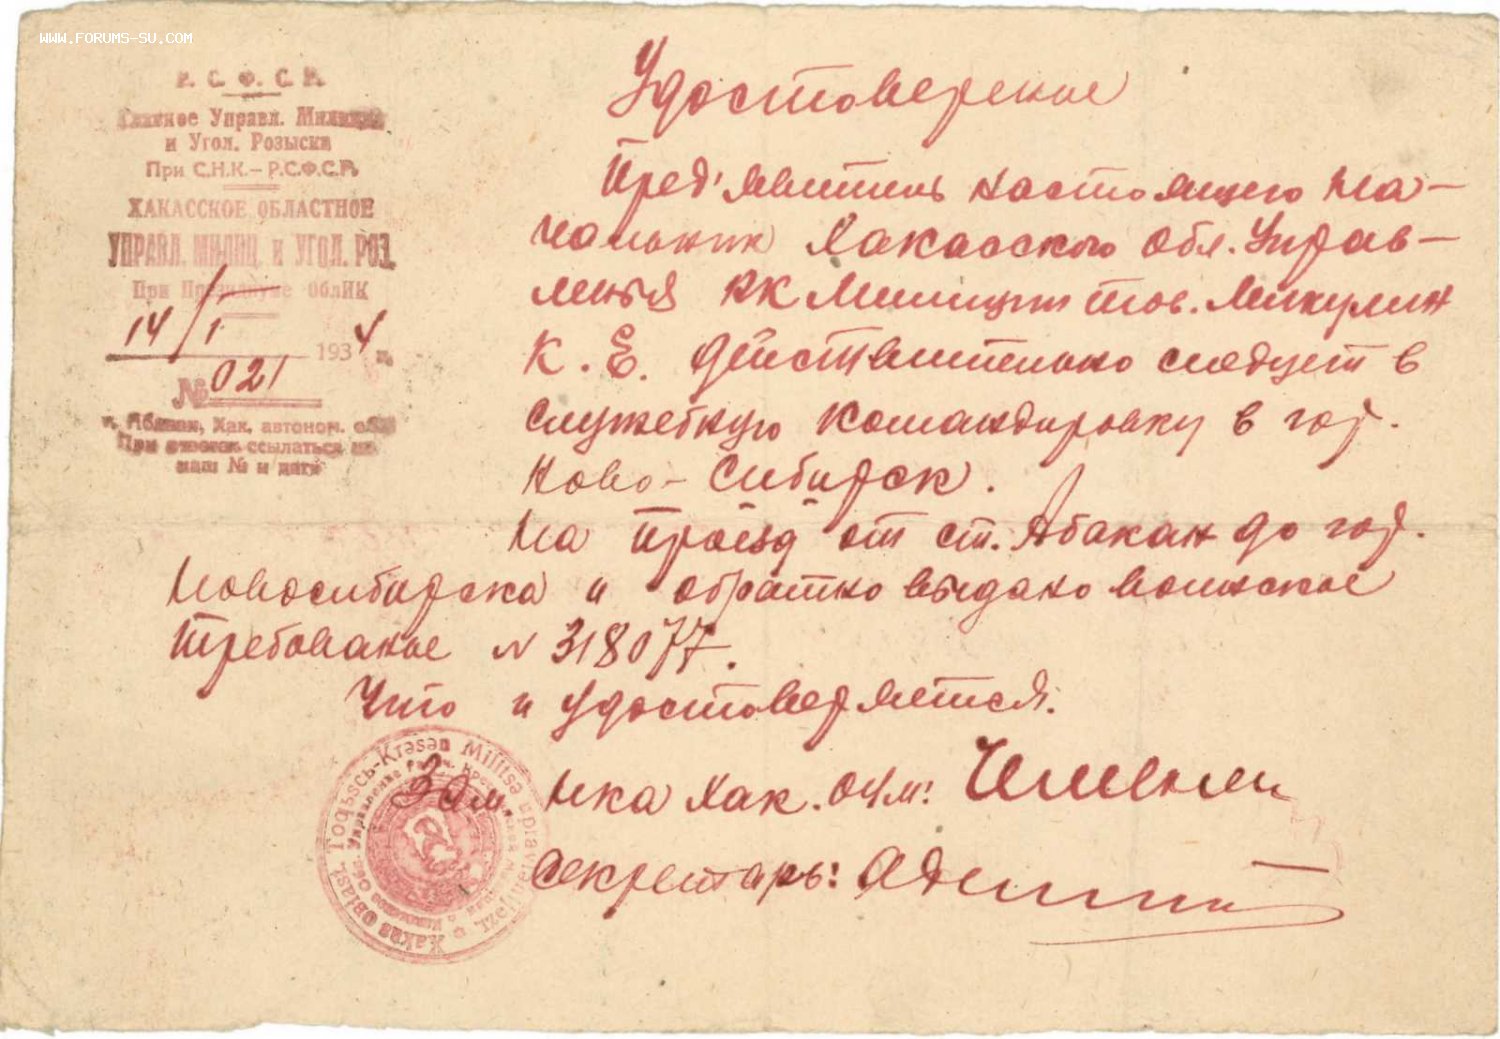 WWW.FORUMS-SU.COM
Р. С. Ф. С. Р.
Главное Управл. Милиции
и Угол. Розыска
При С.Н.К.–Р.С.Ф.С.Р.
ХАКАССКОЕ ОБЛАСТНОЕ
УПРАВЛ. МИЛИЦ. и УГОЛ. РОЗ.
При Президиуме ОблИК
14/1 1934 г.
№ 021
г. Абакан, Хак. автоном. обл.
При ответе ссылаться на
наш № и дату
Удостоверение
Пред'явитель настоящего На-
чальник Хакасского Обл. Управ-
ления РК Милиции тов. Микулин
К. Е. действительно следует в
служебную командировку в гор.
Ново-Сибирск.
На проезд от ст. Абакан до гор.
Новосибирска и обратно выдано воинское
требование N 318077.
Что и удостоверяется.
Зам. Нка Хак. ОУМ:
Секретарь:
Xakas Oblast Toqьscь-Krəsən Militsə upravlenijəzi